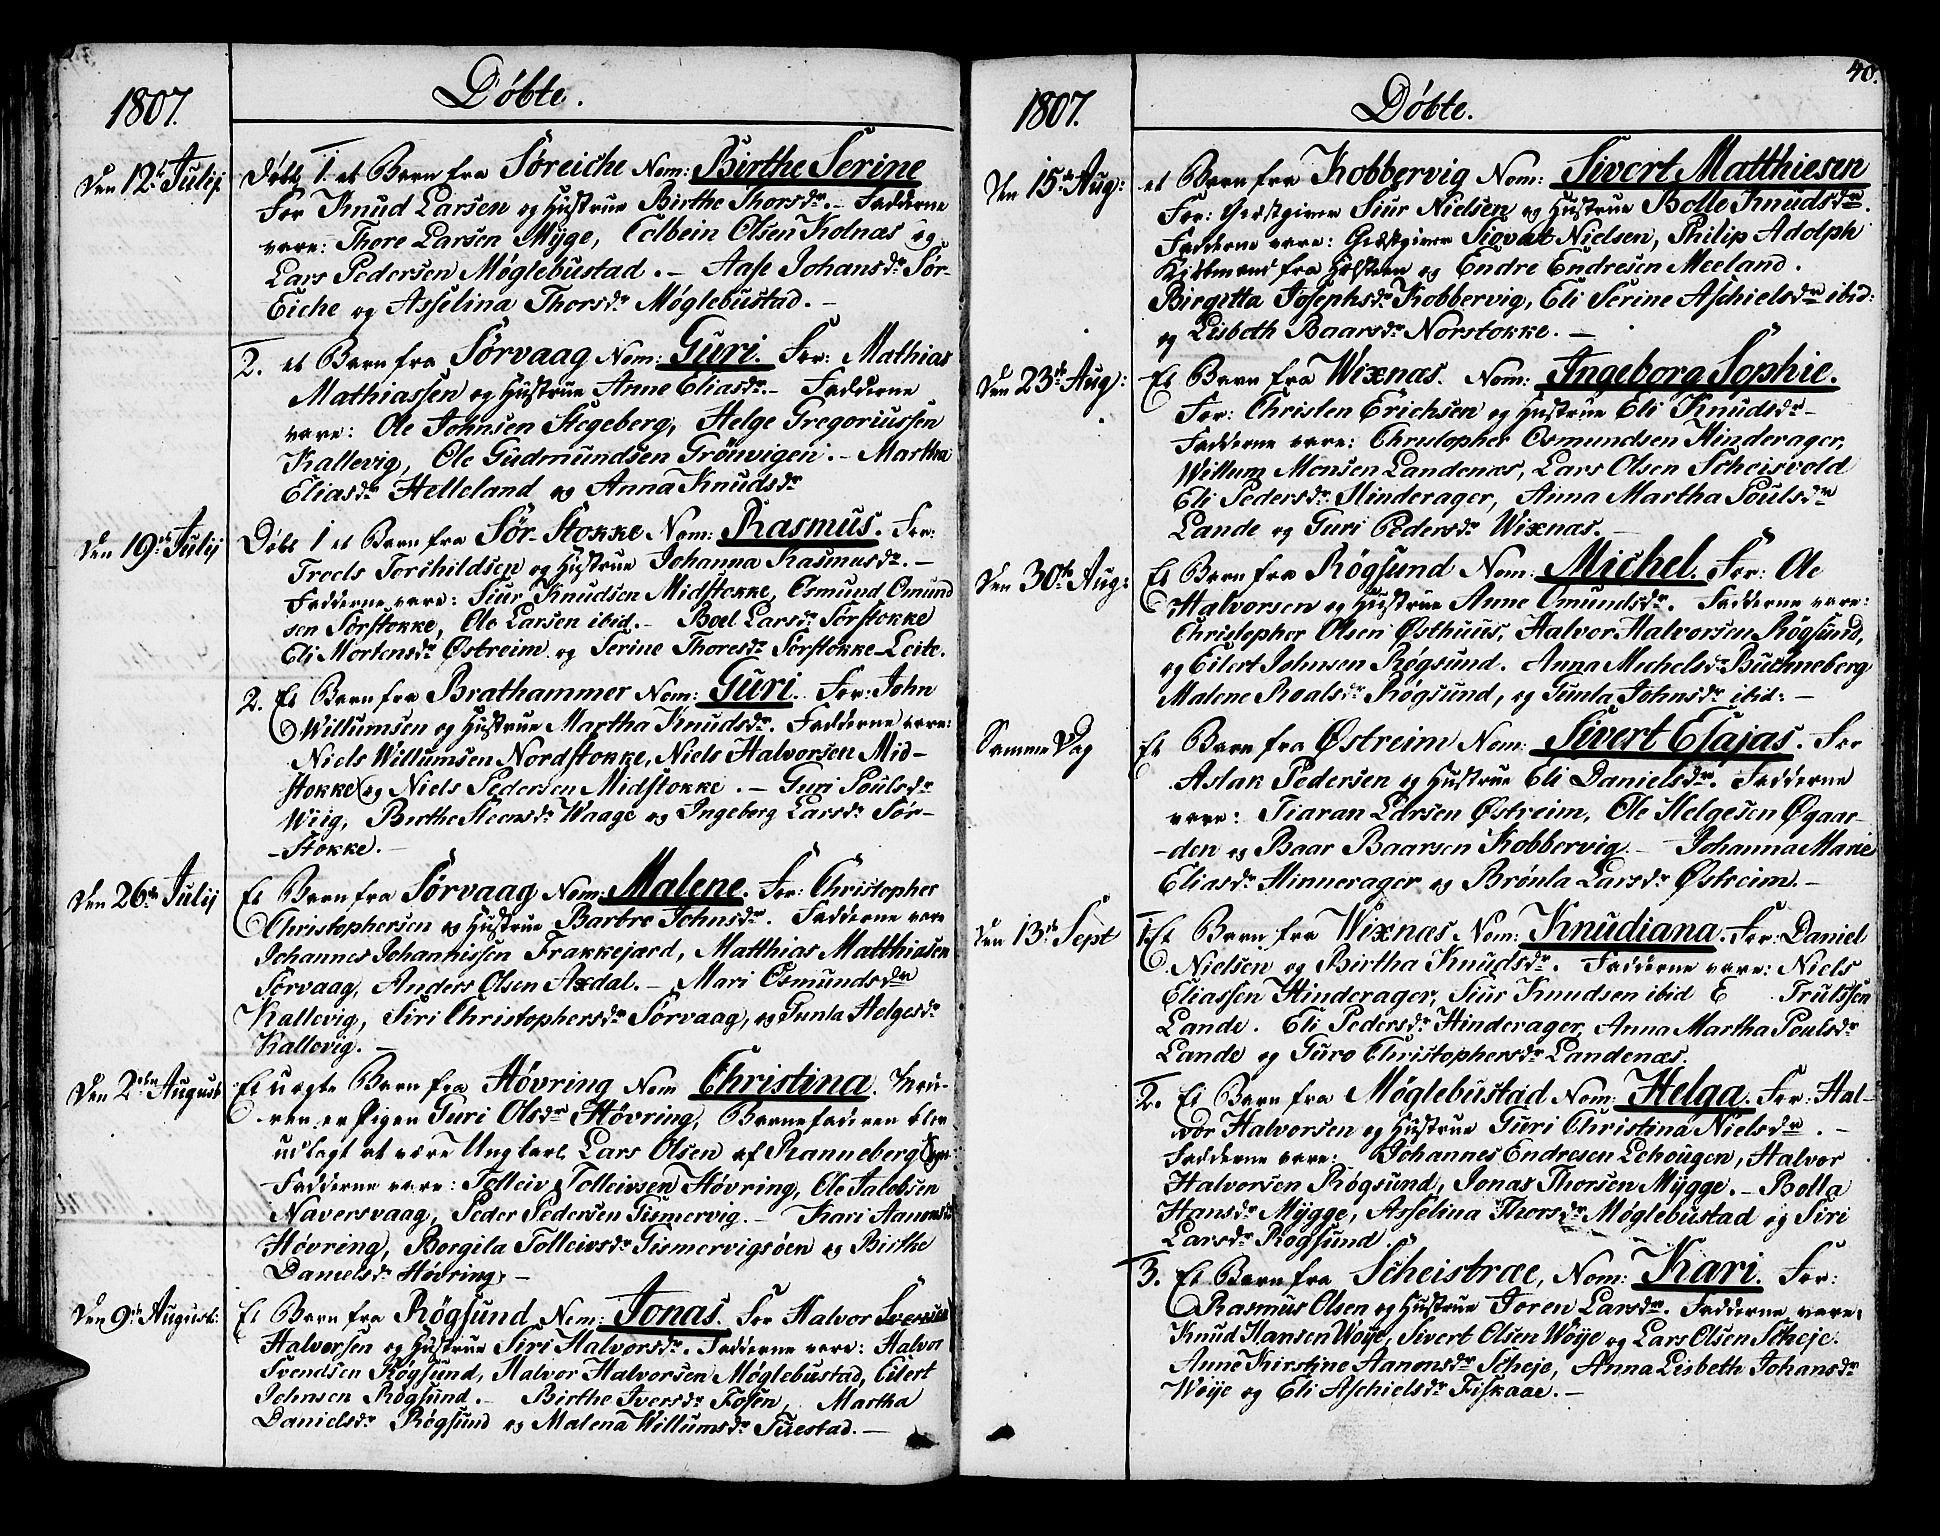 1807.
Døbte.
Den 12te Julij
Døbt 1. et Barn fra Søreiche Nom: Birthe Serine
For Knud Larsen og Hustrue Birthe Thorsdr. – Fadderne
vare: Thore Larsen Myge, Colbein Olsen Kolnæs og
Lars Pedersen Møglebustad. – Aase Johansdr Sør-
Eiche og Asselina Thorsdr Møglebustad. –
2. et Barn fra Sørvaag Nom: Guri. For: Mathias
Mathiassen og Hustrue Anne Eliasdr. – Fadderne
vare: Ole Johnsen Stegeberg, Helge Gregoriussen
Kallevig, Ole Gudmundsen Grönvigen. – Martha
Eliasdr Helleland og Anna Knudsdr
Den 19de Julij
Døbt 1 et Barn fra Sør-Stokke Nom: Rasmus. For:
Troels Torchildsen og Hustrue Johanna Rasmusdr. –
Fadderne vare: Siur Knudsen Midstokke, Osmund Omund
sen Sørstokke, Ole Larsen ibid. – Boel Larsdr Sørstokke
Eli Mortensdr Østreim og Serine Thoresdr Sørstokke-Leite.
2. Et Barn fra Brathammer Nom: Guri. For: John
Willumsen og Hustrue Martha Knudsdr. Fadderne vare:
Niels Willumsen Nordstokke, Niels Halvorsen Mid-
stokke og Niels Pedersen Midstokke. – Guri Poulsdr
Wiig, Birthe Steensdr Waage og Ingeborg Larsdr Sør-
-Stokke. –
Den 26de Julij
Et Barn fra Sørvaag Nom: Malene. For: Christopher
Christophersen og Hustrue Barbro Johnsdr. Fadderne vare
Johannes Johannissen Frakkejard, Matthias Matthiasen
Sørvaag, Anders Olsen Axdal. – Mari Osmundsdr
Kallevig, Siri Christophersdr Sørvaag, og Gunla Helgesdr
Kallevig. –
Den 2den August
Et uægte Barn fra Høvring Nom Christina. Mou-
ren er Pigen Guri Olsdr Høvring, Barnefaderen blev
udlagt at være Ungkarl Lars Olsen af Ranneberg
Fadderne vare: Tolleiv Tolleivsen Høvring, Ole Jacobsen
Naversvaag, Peder Pedersen Gismervig. – Kari Aanensdr
Høvring, Borgila Tolleivsdr Gismervigsøen og Birthe
Danielsdr Høvring –
Den 9de August:
Et Barn fra Røgsund Nom: Jonas. For Halvor Svensen
Halvorsen og Hustrue Siri Halvorsdr. Fadderne vare: Halvor
Svendsen Røgsund, Halvor Halvorsen Møglebustad, Eilert
Johnsen Røgsund. – Birthe Iversdr Fosen, Martha
Danielsdr Røgsund og Malena Willumsdr Tuestad. –
40.
1807.
Døbte.
Den 15de Aug:
et Barn fra Kobbervig Nom: Sivert Matthiesen
For: Giæstgiver Siur Nielsen og Hustrue Bolle Knudsdr.
Fadderne vare: Giæstgiver Sigvat Nielsen, Philip Adolph
fra Holsteen og Endre Endresen Meeland.
Birgitta Josephsdr Kobbervig, Eli Serine Aschielsdr ibid:
og Lisbeth Baarsdr Norstokke. –
Den 23de Aug:
Et Barn fra Wixnæs. Nom: Ingeborg Sophie.
For: Christen Erichsen og Hustrue Eli Knudsdr –
Fadderne vare: Christopher Osmundsen Hinderager,
Willum Monsen Landenæs, Lars Olsen Scheisvold
Eli Pedersdr Hinderager, Anna Martha Poulsdr
Lande og Guri Pedersdr Wixnæs. –
Den 30te Aug:
Et Barn fra Røgsund Nom: Michel. For: Ole
Halvorsen og Hustrue Anne Omundsdr. Fadderne vare:
Christopher Olsen Østhuus, Halvor Halvorsen Røgsund,
og Eilert Johnsen Røgsund. Anna Michelsdr Buchneberg
Malene Roalsdr Røgsund, og Gunla Johnsdr ibid: –
Samme Dag
Et Barn fra Østreim Nom: Sivert Esajas. For
Aslak Pedersen og Hustrue Eli Danielsdr. Fadderne
vare: Tiaran Larsen Østreim, Ole Helgesen Øgaar-
-den og Baar Baarsen Kobbervig – Johanna Marie
Eliasdr Hinnerager og Brønla Larsdr Østreim. –
Den 13de Sept
1. Et Barn fra Wixnæs Nom: Knudiana. For: Daniel
Nielsen og Birtha Knudsdr. Fadderne vare: Niels
Eliassen Hinderager, Siur Knudsen ibid E Trulssen
Lande. Eli Pedersdr Hinderager, Anna Martha Poulsdr
Lande og Guro Christophersdr Landenæs.
2. Et Barn fra Møglebustad Nom: Helga. For: Hal-
vor Halvorsen og Hustrue Guri Christina Nielsdr. –
Fadderne vare: Johannes Endresen Lehougen, Halvor
Halvorsen Røgsund, Jonas Thorsen Mygge. – Bolla
Hansdr Mygge, Asselina Thorsdr Møglebustad og Siri
Larsdr Røgsund
3. Et Barn fra Scheistræe, Nom: Kari. For:
Rasmus Olsen og Hustrue Joren Larsdr. Fadderne vare:
Knud Hansen Woije, Sivert Olsen Woije og Lars Olsen Scheje.
Anne Kirstine Aanonsdr Scheje, Anna Lisbeth Johansdr
Woije og Eli Aschielsdr Fiskaae. –